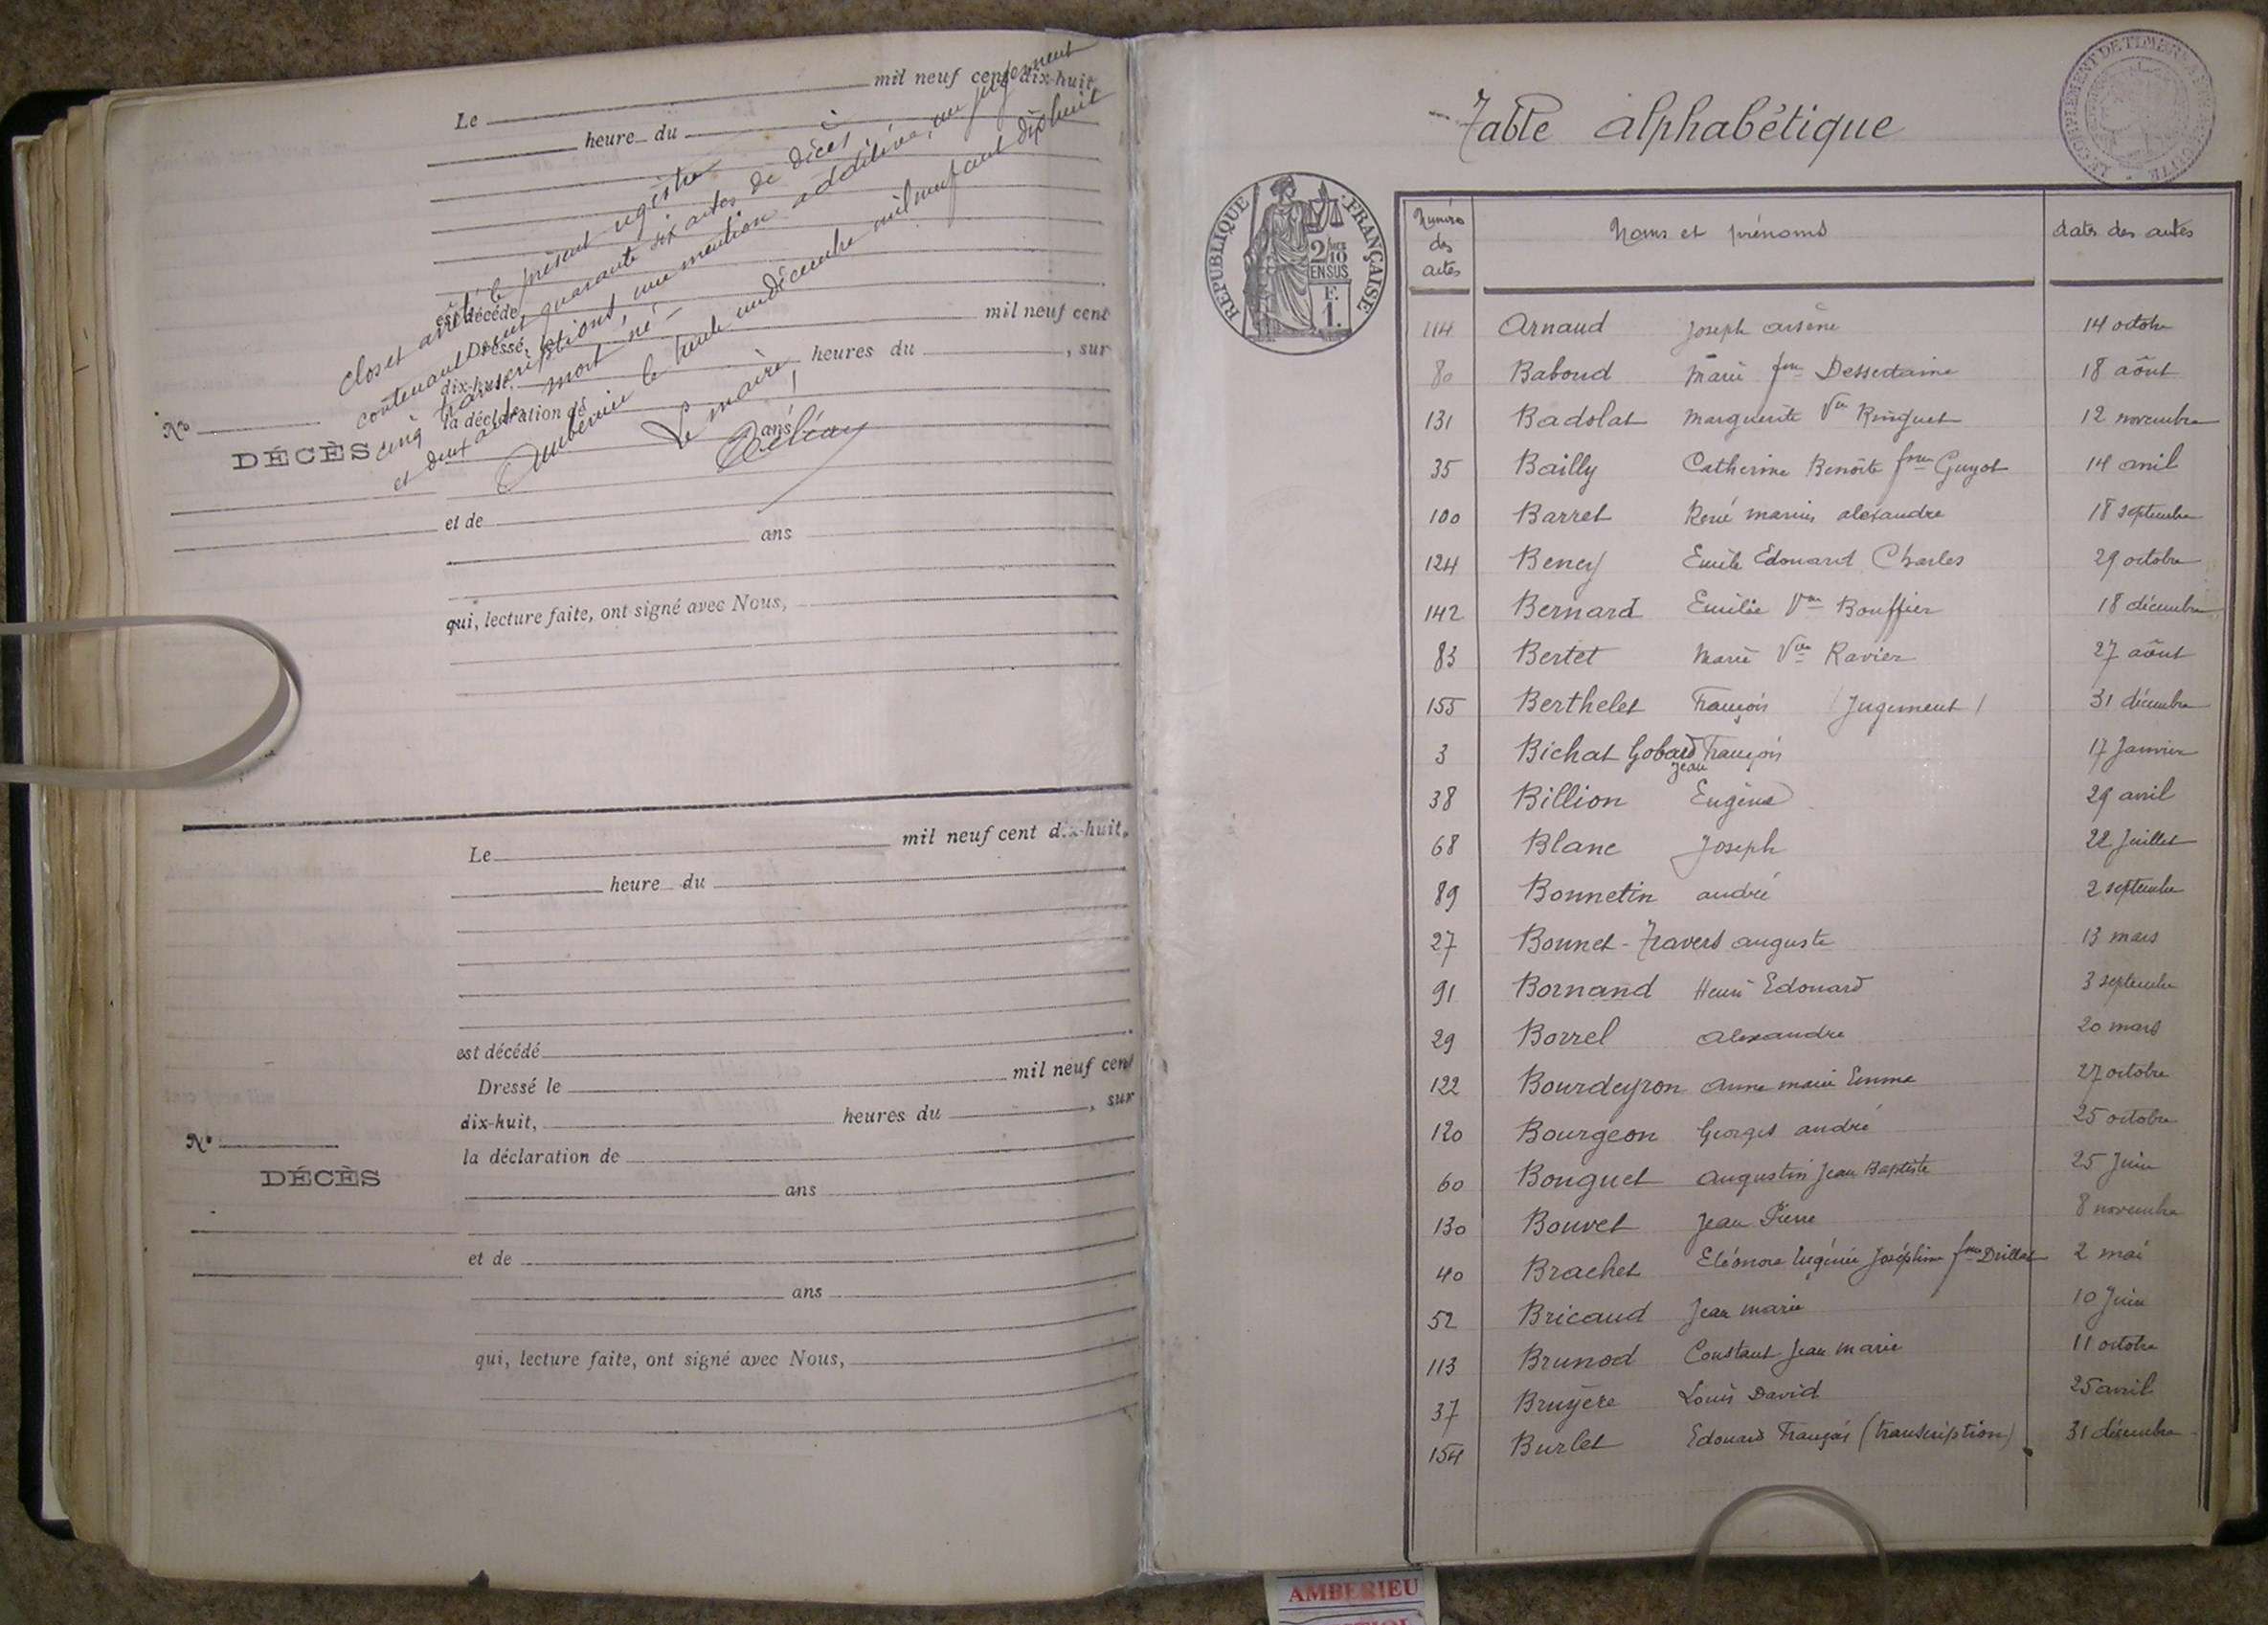 Le mil neuf cent dix-huit,
heure du
Clos et arrêté le présent registre
contenant cent quarante six actes de décès
cinq transcriptions, une mention additive, un jugement
et deux actes mort né
Ambérieu le trente un décembre mil neuf cent dix huit
Le maire
est décédé
Dressé, le mil neuf cent
dix-huit, heures du , sur
la déclaration de
No
DÉCÈS
ans
et de
ans
qui, lecture faite, ont signé avec Nous,
Le mil neuf cent dix-huit,
heure du
est décédé
Dressé le mil neuf cent
dix-huit, heures du , sur
No
la déclaration de
DÉCÈS
ans
et de
ans
qui, lecture faite, ont signé avec Nous,
Table alphabétique
RÉPUBLIQUE FRANÇAISE
2/10
EN SUS
F.
1.
Numéros des actes Noms et prénoms dates des actes
114 Arnaud Joseph arsène 14 octobre
80 Baboud Marie fme Dessertaine 18 août
131 Badolat Marguerite Vve Ringuet 12 novembre
35 Bailly Catherine Benoite fme Guyot 14 avril
100 Barret René marius alexandre 18 septembre
124 Bency Emile Edouard Charles 29 octobre
142 Bernard Emilie Vve Bouffier 18 décembre
83 Bertet Marie Vve Ravier 27 août
155 Berthelet François (Jugement) 31 décembre
3 Bichat Gobard Jean François 17 Janvier
38 Billion Eugène 29 avril
68 Blanc Joseph 22 Juillet
89 Bonnetin andré 2 septembre
27 Bonnet-Travers auguste 13 mars
91 Bornand Henri Edouard 3 septembre
29 Borrel alexandre 20 mars
122 Bourdeyron anne marie Emma 27 octobre
120 Bourgeon Georges andré 25 octobre
60 Bouguet augustin Jean Baptiste 25 Juin
130 Bouvet Jean Pierre 8 novembre
40 Brachet Eléonore Eugénie Joséphine fme Drillat 2 mai
52 Bricaud Jean marie 10 Juin
113 Brunod Constant Jean marie 11 octobre
37 Bruyère Louis David 25 avril
154 Burlet Edouard François (transcription) 31 décembre
AMBERIEU